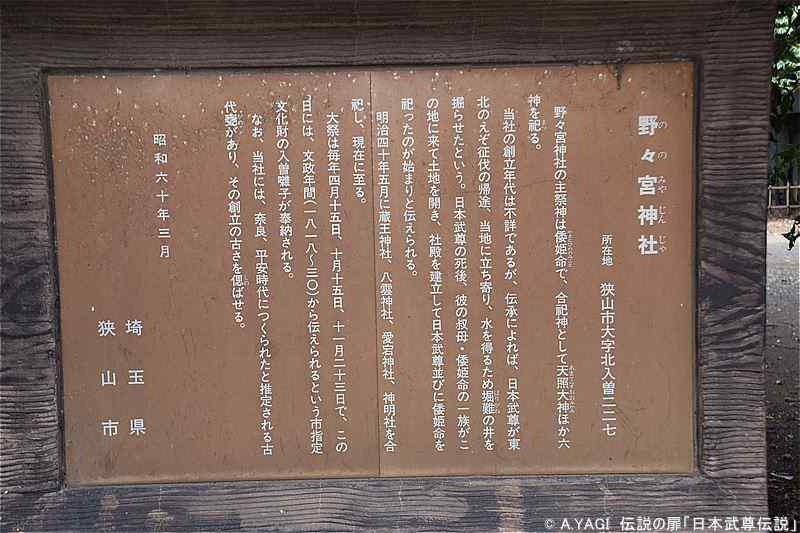 野々宮神社
ののみやじんじゃ
所在地 狭山市大字北入曽二二七
野々宮神社の主祭神は倭姫命で、合祀神として天照大神ほか六
神を祀る。
当社の創立年代は不詳であるが、伝承によれば、日本武尊が東
北のえぞ征伐の帰途、当地に立ち寄り、水を得るため堀難の井を
掘らせたという。日本武尊の死後、彼の叔母・倭姫命の一族がこ
の地に来て土地を開き、社殿を建立して日本武尊並びに倭姫命を
祀ったのが始まりと伝えられる。
明治四十年五月に蔵王神社、八雲神社、愛宕神社、神明社を合
祀し、現在に至る。
大祭は毎年四月十五日、十月十五日、十一月二十三日で、この
日には、文政年間(一八一八〜三〇)から伝えられるという市指定
文化財の入曽囃子が奉納される。
なお、当社には、奈良、平安時代につくられたと推定される古
代甕があり、その創立の古さを偲ばせる。
昭和六十年三月
埼玉県
狭山市
© A.YAGI 伝説の扉「日本武尊伝説」